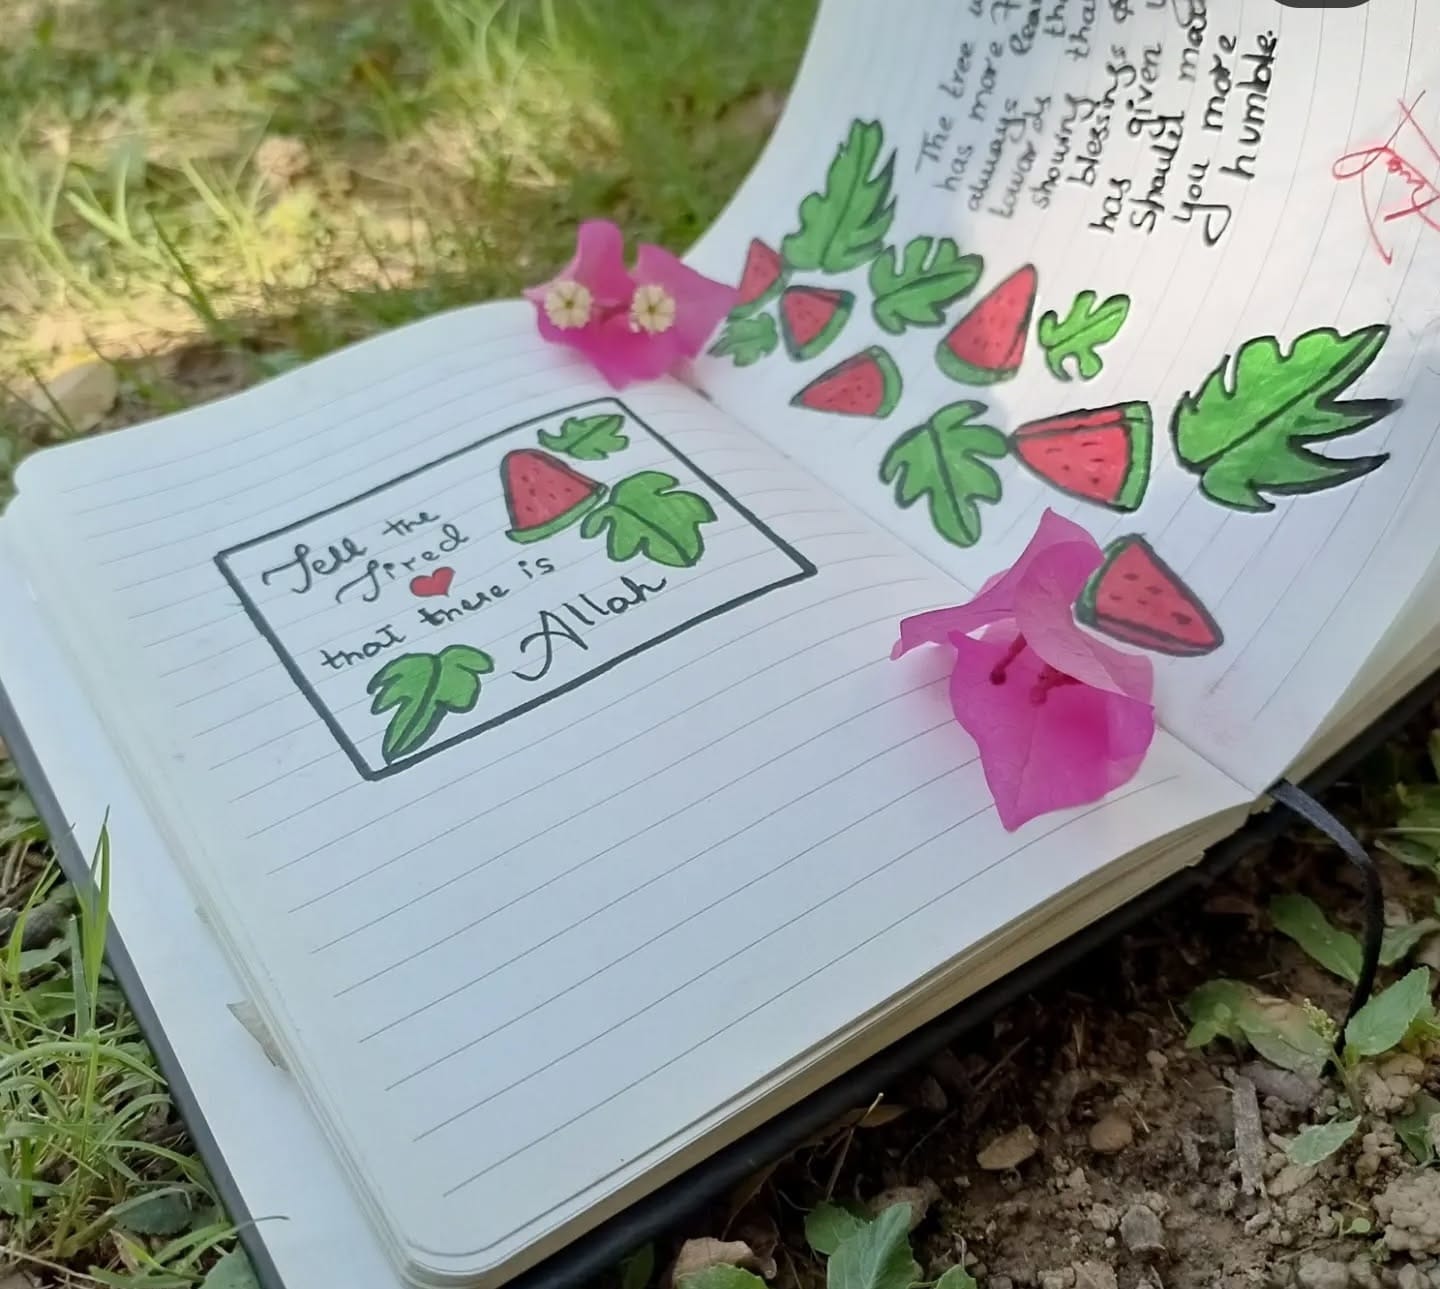 Tell the
Tired
that there is
Allah
The tree
has more
always
towards
showing
blessings
has given
should
you more
humble.